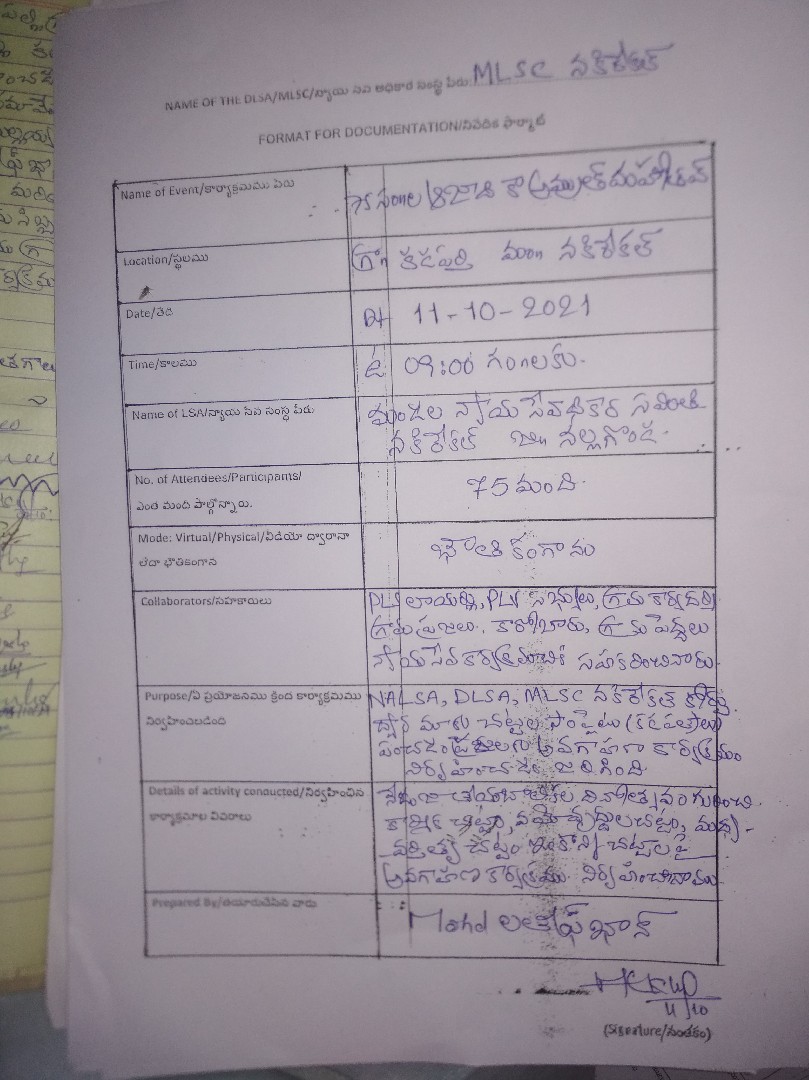 NAME OF THE DLSA/MLSC/న్యాయ సేవ అధికార సంస్థ పేరు MLSC నకిరేకల్
FORMAT FOR DOCUMENTATION/నివేదిక ఫార్మాట్
Name of Event/కార్యాక్రమము పేరు
75 సం॥ల ఆజాది కా అమ్రుత్ మహోత్సవ్
Location/స్థలము
గ్రా॥ కడపర్తి మం॥ నకిరేకల్
Date/తేది
Dt 11-10-2021
Time/కాలము
ఉ 09:00 గం॥లకు.
Name of LSA/న్యాయ సేవ సంస్థ పేరు
మండల న్యాయ సేవాధికార సమితి
నకిరేకల్ జి॥ నల్లగొండ.
No. of Attendees/Participants/
ఎంత మంది పాల్గొన్నారు.
75 మంది.
Mode: Virtual/Physical/వీడియో ద్వారానా
లేదా భౌతికంగాన
భౌతికంగాను
Collaborators/సహకారులు
PLV లాయర్లు, PLV సభ్యులు, గ్రామ కార్యదర్శి
గ్రామ ప్రజలు. కారోబారు, గ్రామ పెద్దలు
న్యాయసేవ కార్యక్రమానికి సహకరించినారు.
Purpose/ఏ ప్రయోజనము క్రింద కార్యాక్రమము
నిర్వహించబడింది
NALSA, DLSA, MLSC నకిరేకల్ కోర్టు
ద్వార మూల చట్టల పాంప్లెట్లు (కరపత్రాలు)
పంచడం ప్రజలకు అవగాహన కార్యక్రమం
నిర్వహించడం జరిగింది.
Details of activity conducted/నిర్వహించిన
కార్యాక్రమాల వివరాలు
బాలికల దినోత్సవం గురించి.
కార్మిక చట్టం, వయో వృద్ధుల చట్టం, మధ్య-
వర్తిత్వ చట్టం ఇంకొన్ని చట్టాలపై
అవగాహణ కార్యక్రమం నిర్వహించినాము.
Prepared By/తయారుచేసిన వారు
Mohd లతీఫ్ ఖాన్
11/10
(Signature/సంతకం)